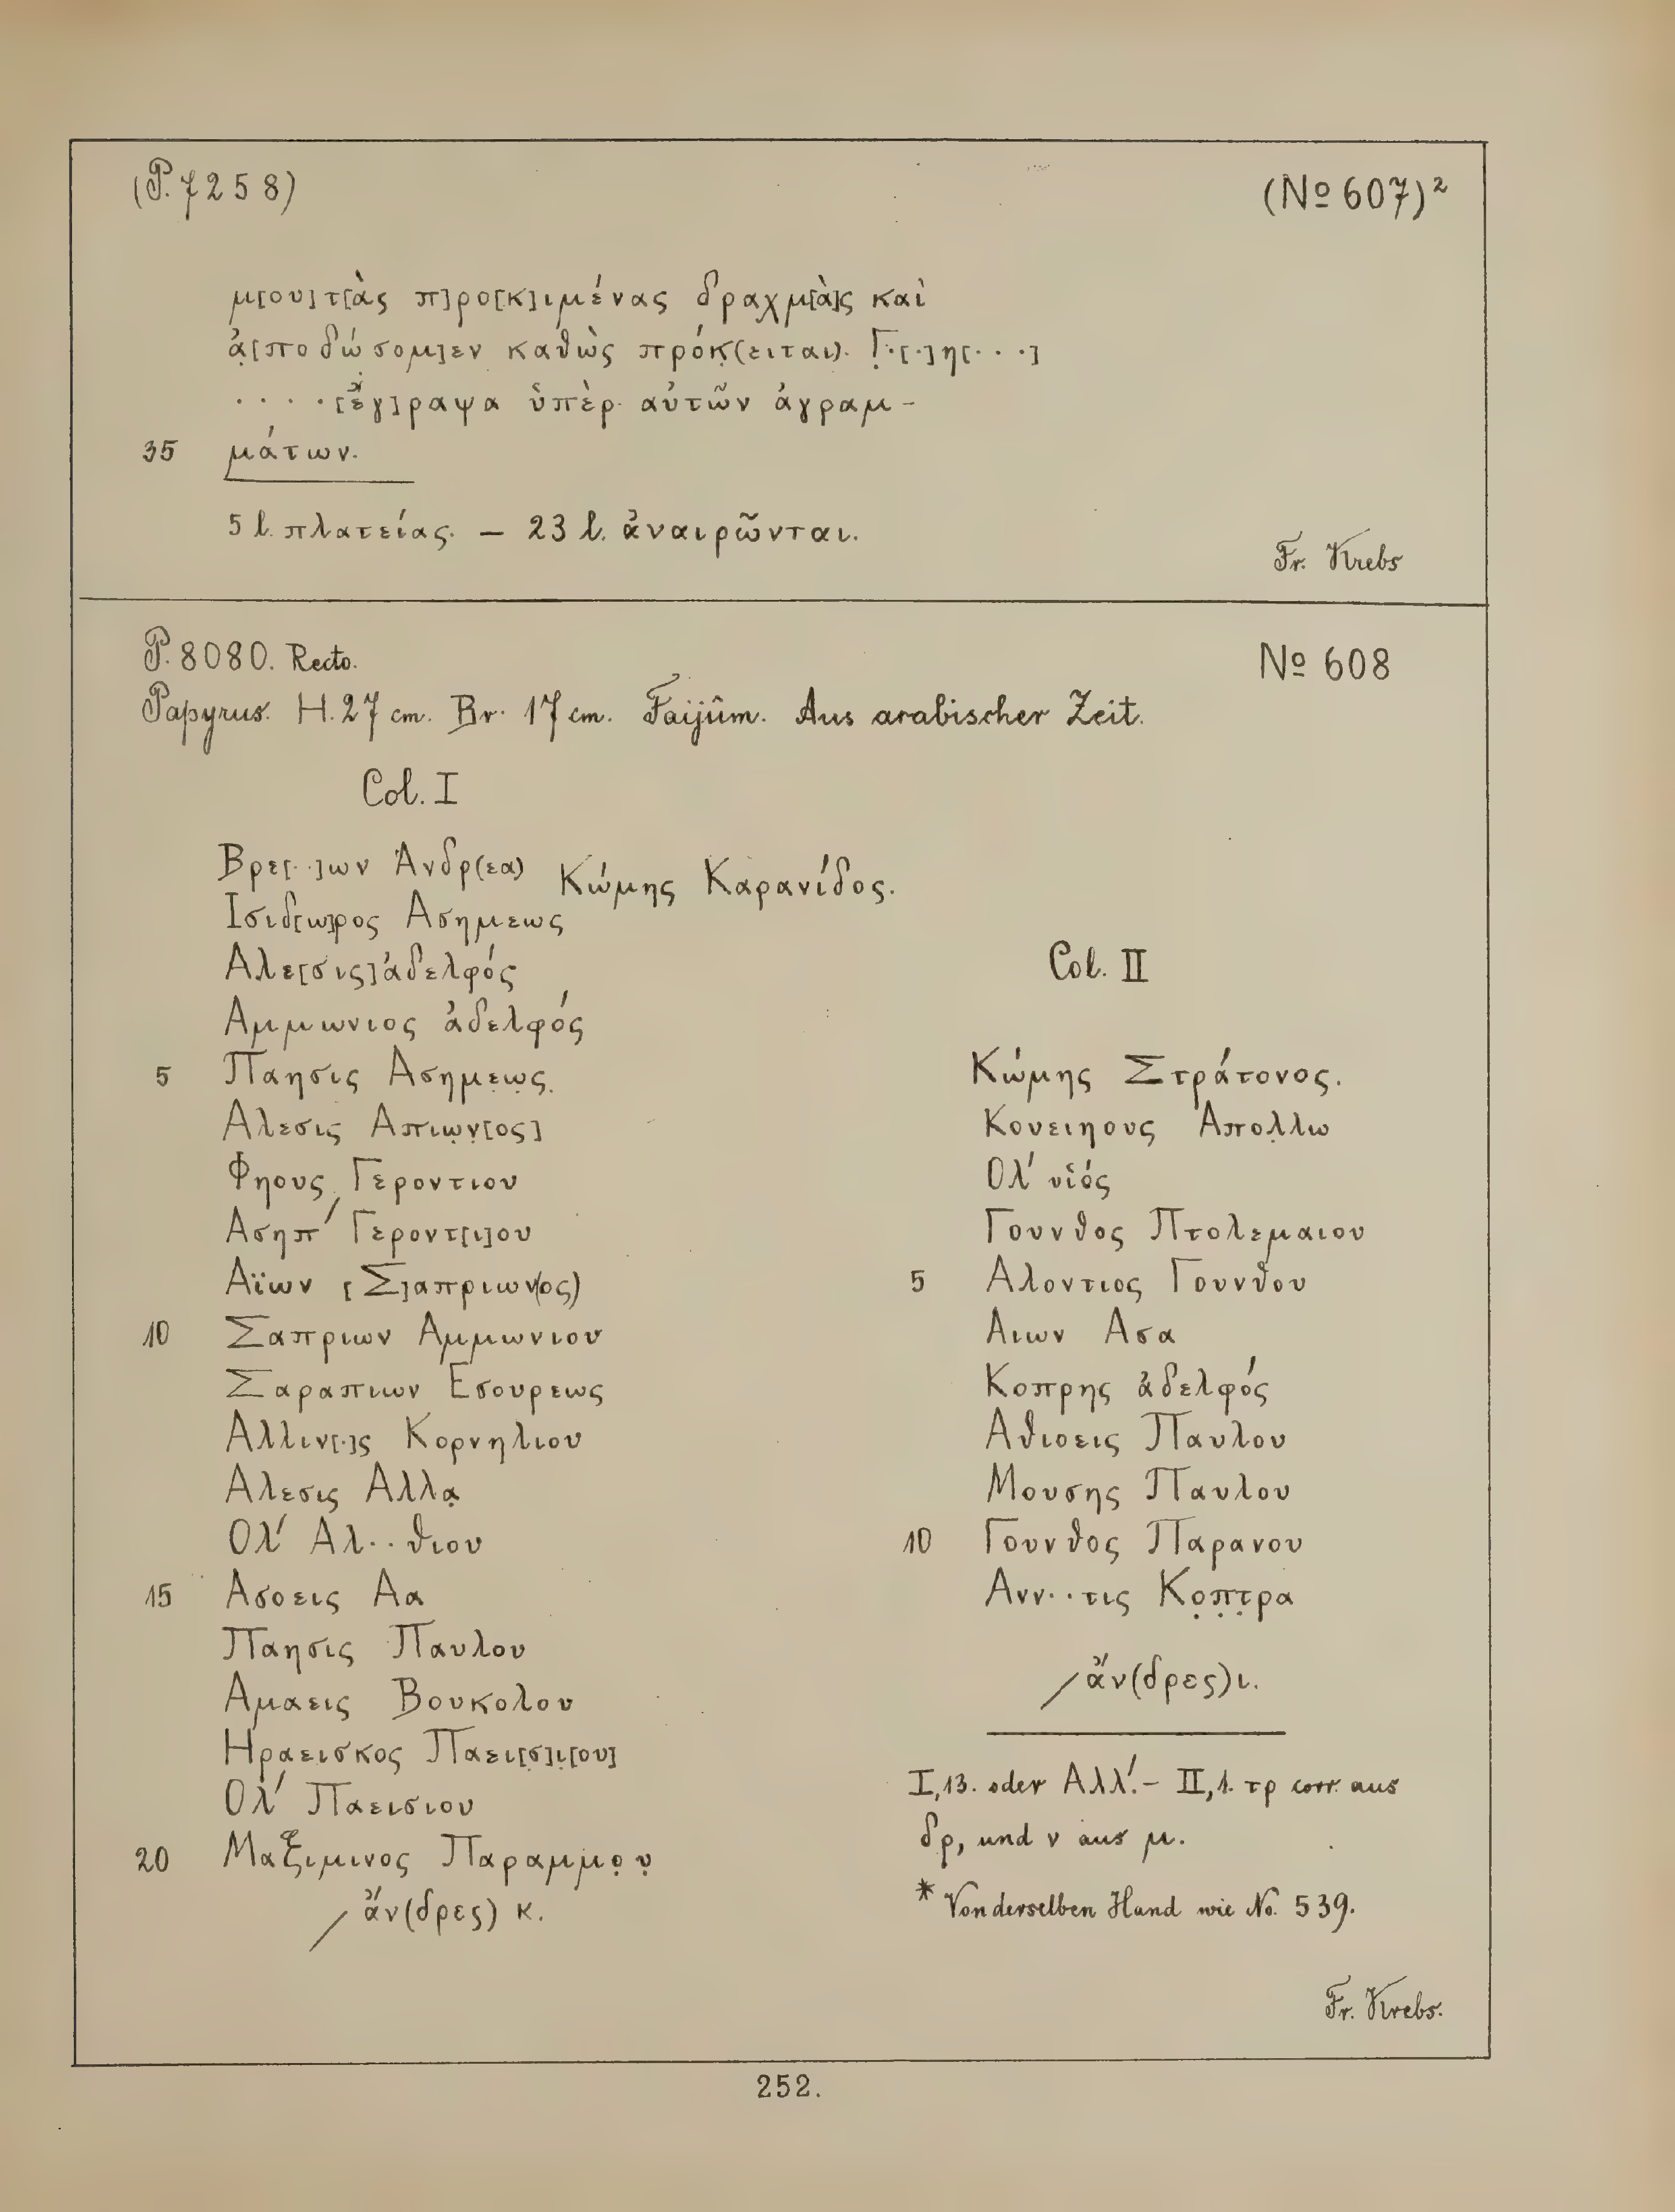 (P. 7258)
(No 607)²
μ[ου] τ[ὰς π]ρο[κ]ιμένας δραχμ[ὰ]ς καὶ
ἀ̣[ποδώσομ]εν καθὼς πρόκ̣(ειται). Γ̣·[·]η[···]
····[ἔγ]ραψα ὑπὲρ αὐτῶν ἀγραμ-
35 μάτων.
5 l. πλατείας. — 23 l. ἀναιρῶνται.
Fr. Krebs
P. 8080. Recto.
No 608
Papyrus. H. 27 cm. Br. 17 cm. Faijûm. Aus arabischer Zeit.
Col. I
Βρε[··]ων Ἀνδρ(εα)
Κώμης Καρανίδος.
Ισιδ[ω]ρος Ασημεως
Αλε[σις] ἀδελφός
Αμμωνιος ἀδελφός
5 Παησις Ασημ̣ε̣ω̣ς̣
Αλεσις Απιω̣ν̣[ος]
Φηους Γεροντιου
Ασηπ' Γεροντ[ι]ου
Αϊων [Σ]απριων(ος)
10 Σαπριων Αμμωνιου
Σαραπιων Εσουρεως
Αλλιν[·]ς Κορνηλιου
Αλεσις Αλλα̣
Ολ' Αλ··θιου
15 Ασοεις Αα
Παησις Παυλου
Αμαεις Βουκολου
Ηραεισκος Παει[σ]ι̣[ου]
Ολ' Παεισιου
20 Μαξιμινος Παραμμο̣υ̣
⁄ ἄν(δρες) κ.
Col. II
Κώμης Στράτονος.
Κουειηους Απολ̣λω
Ολ' υἱός
Γουνθος Πτολεμαιου
5 Αλοντιος Γουνθου
Αιων Ασα
Κοπρης ἀδελφός
Αθιοεις Παυλου
Μουσης Παυλου
10 Γουνθος Παρανου
Ανν··τις Κο̣π̣τ̣ρα
⁄ ἄν(δρες) ι.
I, 13. oder Αλλ'. — II, 1. τρ corr. aus
δρ, und ν aus μ.
* Von derselben Hand wie No. 539.
Fr. Krebs.
252.